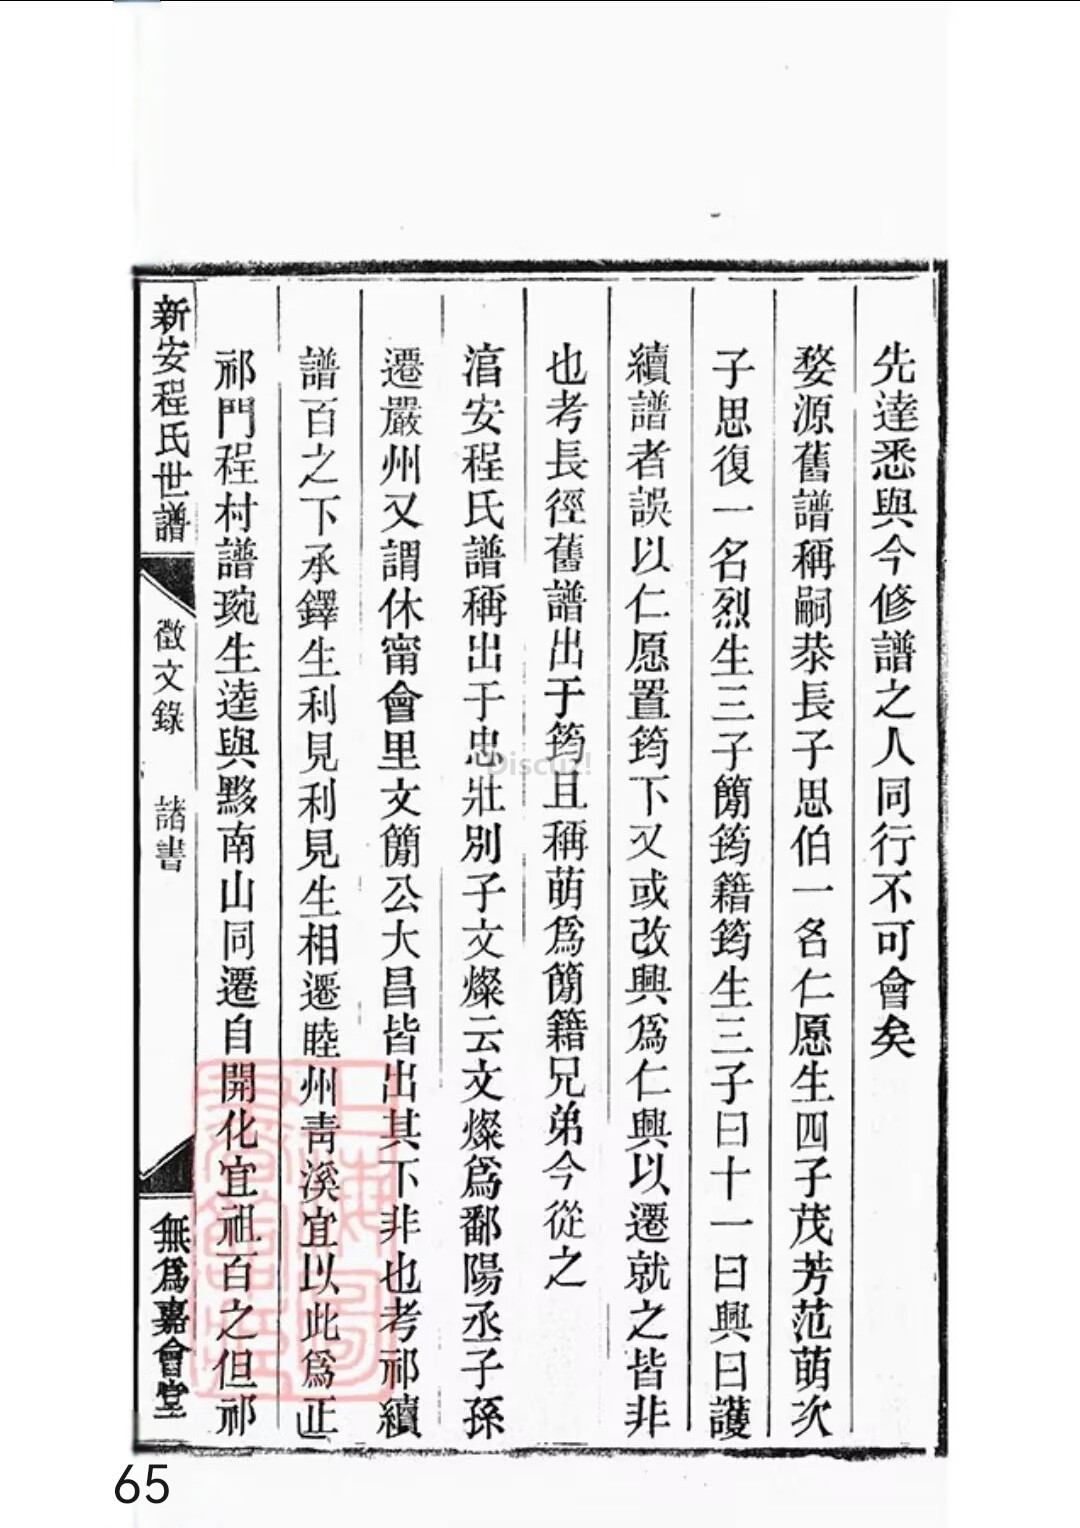 先達悉與今修譜之人同行不可會矣
婺源舊譜稱嗣恭長子思伯一名仁愿生四子茂芳范萌次
子思復一名烈生三子簡筠籍筠生三子曰十一曰興曰護
續譜者誤以仁愿置筠下又或改興爲仁興以遷就之皆非
也考長徑舊譜出于筠且稱萌爲簡籍兄弟今從之
淯安程氏譜稱出于忠壯別子文燦云文燦爲鄱陽丞子孫
遷嚴州又謂休甯會里文簡公大昌皆出其下非也考祁續
譜百之下承鐸生利見利見生相遷睦州靑溪宜以此爲正
祁門程村譜琬生逵與黟南山同遷自開化宜祖百之但祁
新安程氏世譜
徵文錄
諸書
無爲嘉會堂
上海圖書館藏
Discuz!
65